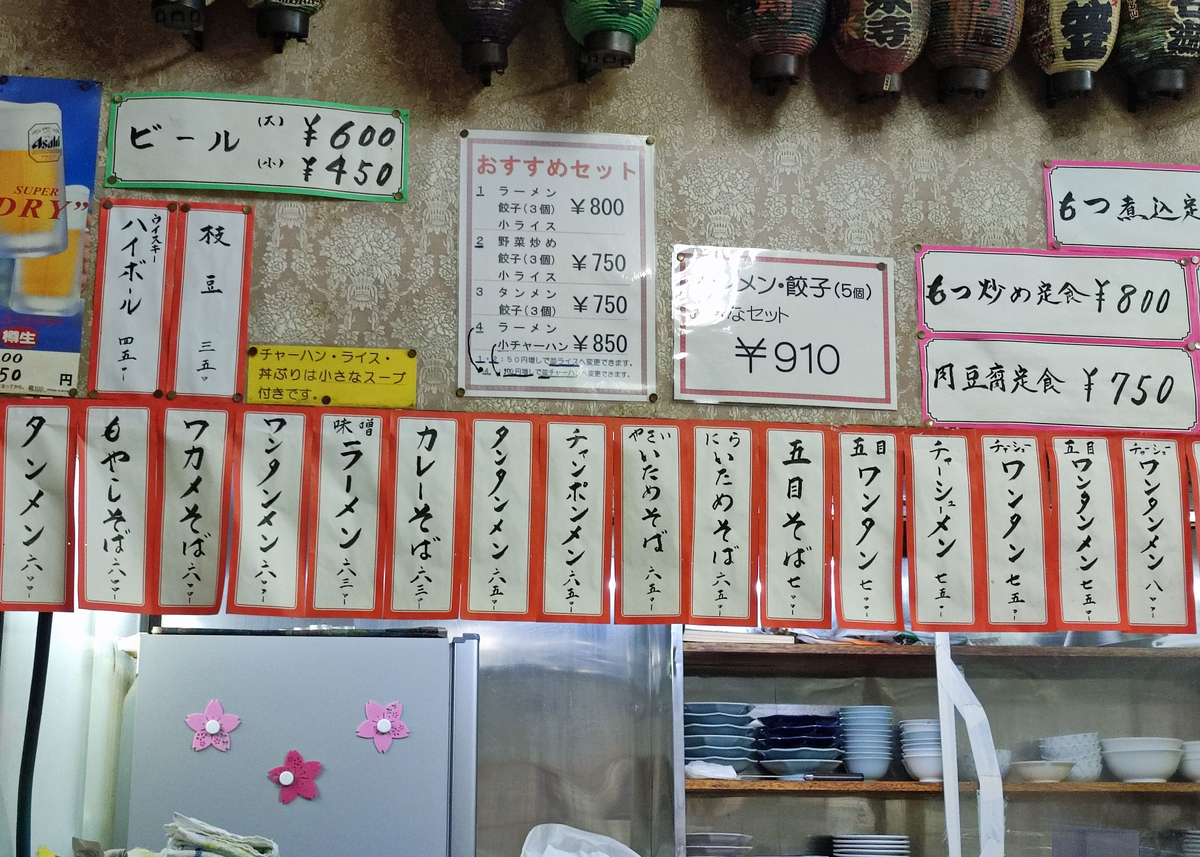 ビール (大) ¥600
(小) ¥450
Asahi
SUPER
DRY”
樽生
00
50 円
ウイスキー
ハイボール 四五〇
枝豆 三五〇
おすすめセット
1 ラーメン
餃子(3個) ¥800
小ライス
2 野菜炒め
餃子(3個) ¥750
小ライス
3 タンメン
餃子(3個) ¥750
4 ラーメン
小チャーハン ¥850
メン・餃子(5個)
なセット
¥910
もつ煮込定
もつ炒め定食 ¥800
肉豆腐定食 ¥750
チャーハン・ライス・
丼ぶりは小さなスープ
付きです。
タンメン 六〇〇
もやしそば 六〇〇
ワカメそば 六〇〇
ワンタンメン 六〇〇
味噌ラーメン 六三〇
カレーそば 六三〇
タンタンメン 六五〇
チャンポンメン 六五〇
やさいいためそば 六五〇
にらいためそば 六五〇
五目そば 七〇〇
五目ワンタン 七〇〇
チャーシューメン 七五〇
チャーシューワンタン 七五〇
五目ワンタンメン 七五〇
チャーシューワンタンメン 八〇〇